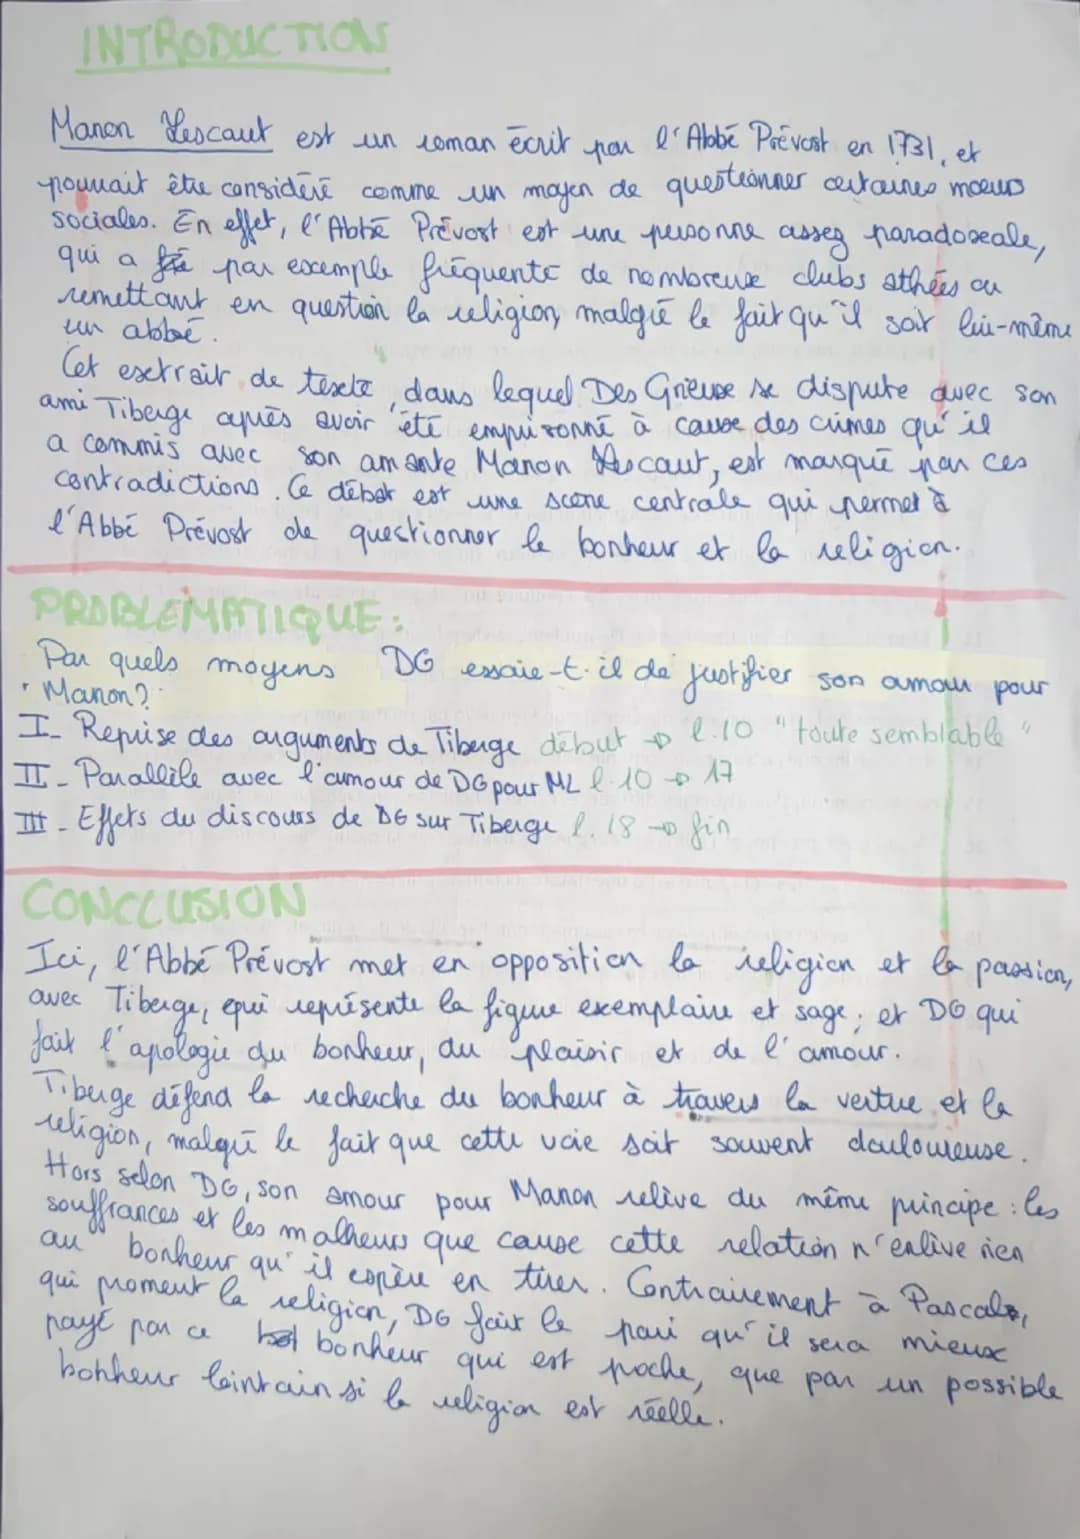 INTRODUCTION
Manon Lescaut est un roman écrit par l'Abbé Prévost en 1731, et
pouvait être considéré comme un moyen de questionner certaines moeurs
sociales. En effet, l'Abbé Prévost est une personne assez paradoxale,
qui a par exemple fréquenté de nombreux clubs athées ou
remettant en question la religion, malgré le fait qu'il soit lui-même
un abbé.
Cet extrait de texte, dans lequel Des Grieux se dispute avec son
ami Tiberge après avoir été emprisonné à cause des crimes qu'il
a commis avec son amante Manon Lescaut, est marqué par ces
contradictions. Ce débat est une scène centrale qui permet à
l'Abbé Prévost de questionner le bonheur et la religion.
PROBLEMATIQUE :
Par quels moyens DG essaie-t-il de justifier son amour pour
Manon?
I- Reprise des arguments de Tiberge début → l.10 "toute semblable"
II- Parallèle avec l'amour de DG pour ML l.10 → 17
III- Effets du discours de DG sur Tiberge l.18 → fin
CONCLUSION
Ici, l'Abbé Prévost met en opposition la religion et la passion,
avec Tiberge, qui représente la figure exemplaire et sage; et DG qui
fait l'apologie du bonheur, du plaisir et de l'amour.
Tiberge défend la recherche du bonheur à travers la vertue et la
religion, malgré le fait que cette voie soit souvent douloureuse.
Hors selon DG, son amour pour Manon relève du même principe : les
souffrances et les malheurs que cause cette relation n'enlève rien
au bonheur qu'il espère en tirer. Contrairement à Pascal,
qui promeut la religion, DG fait le pari qu'il sera mieux
payé par ce bonheur qui est proche, que par un possible
bonheur lointain si la religion est réelle.